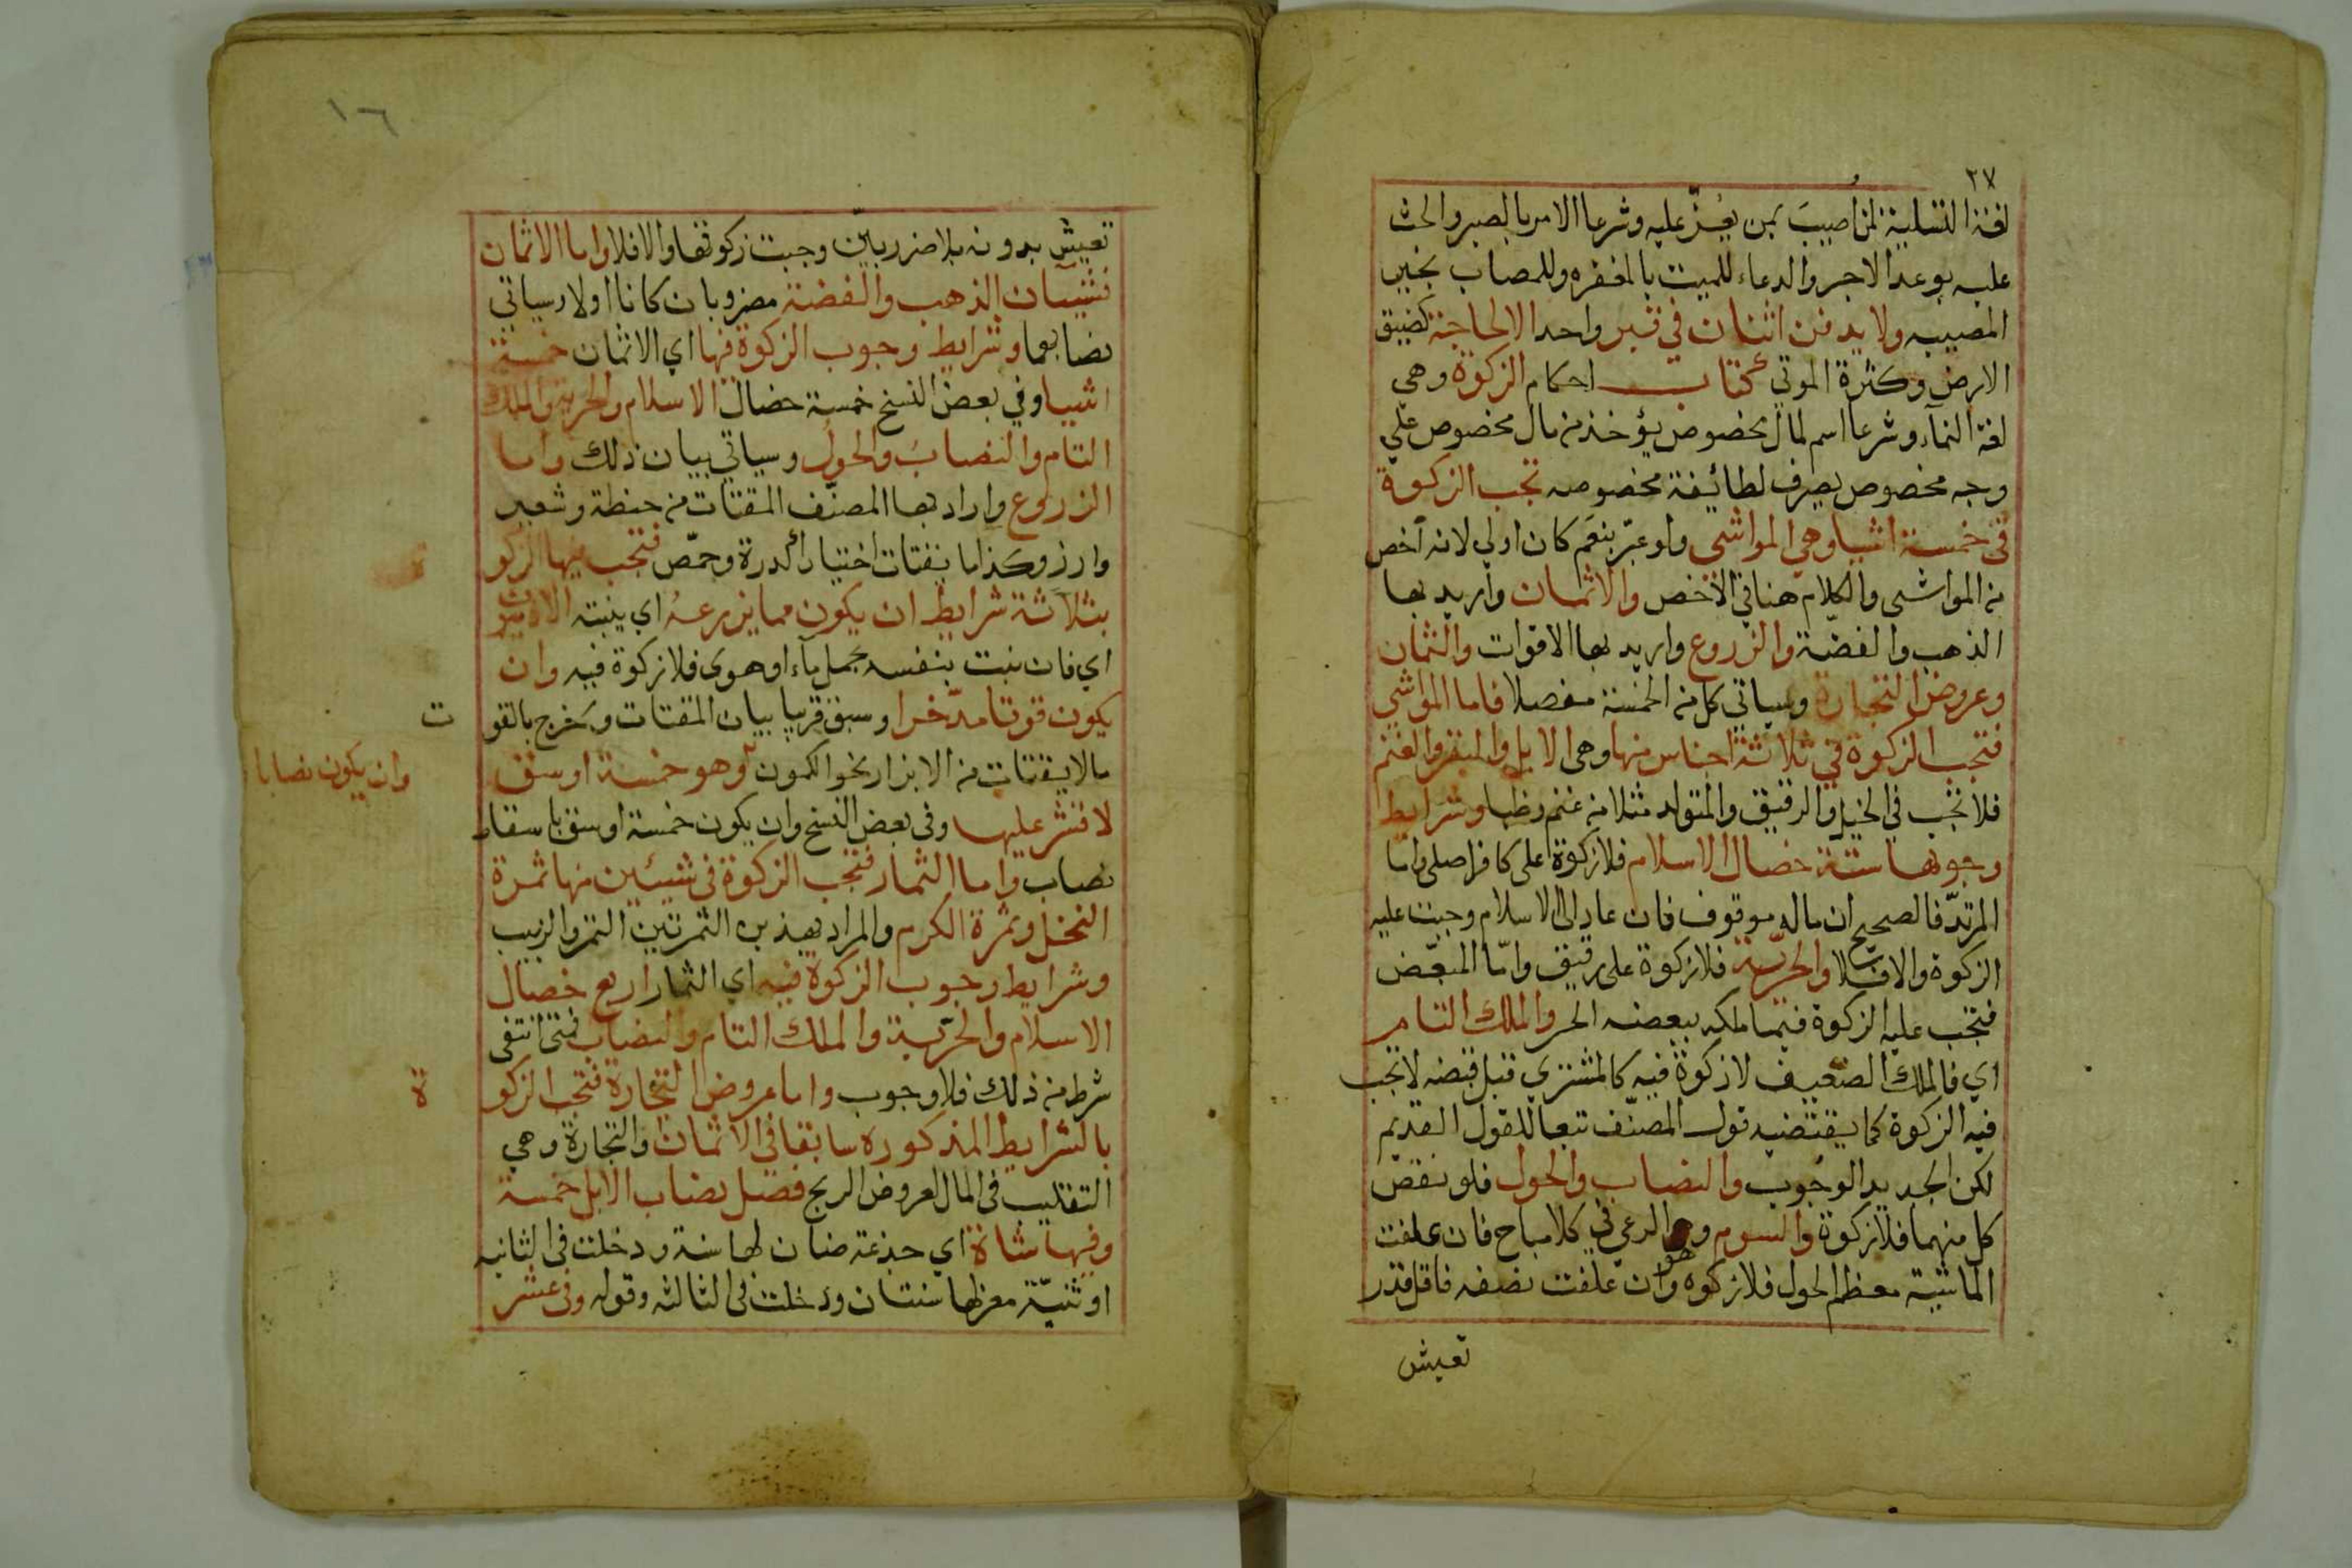 ٢٧
لغة التسلية لمن اصيب بمن يعُزّ عليه وشرعا الامر بالصبر والحث
عليه بوعد الاجر والدعاء للميت بالمغفره وللمصاب بجبر
المصيبه ولا يدفن اثنان في قبر واحد الا لحاجة كضيق
الارض وكثرة الموتي كتاب احكام الزكوة وهي
لغة النمآء وشرعا اسم لمال مخصوص يؤخذ من مال مخصوص علي
وجه مخصوص يصرف لطائيفة مخصوصه تجب الزكوة
في خمسة اشيا وهي المواشي ولو عبّر بنعَم كان اولي لانه أخص
من المواشي والكلام هنا في الأخص والاثمان وأريد بها
الذهب والفضّة والزروع واريد بها الاقوات والثمان
وعروض التجارة وسياتي كل من الخمسة مفصلا فاما المواشي
فتجب الزكوة في ثلاثة اجناس منها وهي الابل والبقر والغنم
فلا تجب في الخيل والرقيق والمتولد مثلا من غنم وظبا وشرايط
وجوبها ستة خصال الاسلام فلا زكوة علي كافر اصلي واما
المرتدّ فالصحيح ان ماله موقوف فان عاد الي الاسلام وجبت عليه
الزكوة والا فلا والحريّة فلا زكوة علي رقيق وامّا المبعّض
فتجب عليه الزكوة فيما ملكه ببعضه الحر والملك التام
اي فالملك الضعيف لا زكوة فيه كالمشتري قبل قبضه لا تجب
فيه الزكوة كما يقتضيه قول المصنّف تبعا للقول القديم
لكن الجديد الوجوب والنصاب والحول فلو نقص
كل منهما فلا زكوة والسوم وهو الرعي في كلا مباح فان علفت
الماشية معظم الحول فلا زكوه وان علفت نصفه فاقل قدر
تعيش
١٦
تعيش بدونه بلا ضرر بيّن وجبت زكوتها والا فلا واما الاثمان
فشيأن الذهب والفضة مضروبان كانا اولا وسياتي
نصابهما وشرايط وجوب الزكوة فيها اي الاثمان خمسة
اشيا وفي بعض النسخ خمسة خصال الاسلام والحرية والملك
التام والنصابَ والحول وسياتي بيان ذلك واما
الزروع واراد بها المصنّف المقتات من حنطة وشعير
وارز وكذا ما يقتات اختيارا كدرة وحمّص فتجب فيها الزكو
ة
بثلاثة شرايط ان يكون مما يزرعهُ اي ينبته الادميون
اي فان نبت بنفسه بحمل مآء او هوي فلا زكوة فيه وان
يكون قوتا مدّخرا وسبق قريبا بيان المقتات وخرج بالقو
ت
مالا يقتات من الابزار نحو الكمون وهو خمسة اوسق
وان يكون نصابا
لا قشر عليها وفي بعض النسخ وان يكون خمسة اوسق باسقاط
نصاب واما الثمار فتجب الزكوة في شيئين منها ثمرة
النخل وثمرة الكرم والمراد بهذين الثمرتين التمر والزبيب
وشرايط وجوب الزكوة فيه اي الثمار اربع خصال
الاسلام والحرّية والملك التام والنصاب فمتي انتفي
شرط من ذلك فلا وجوب واما عروض التجارة فتجب الزكو
ة
بالشرايط المذكوره سابقا في الاثمان والتجارة وهي
التقليب في المال لعروض الربح فصل نصاب الابل خمسة
وفيها شاة اي جذعة ضان لها سنة ودخلت في الثانيه
او ثنيّة معز لها سنتان ودخلت في الثالثه وقوله وفي عشر